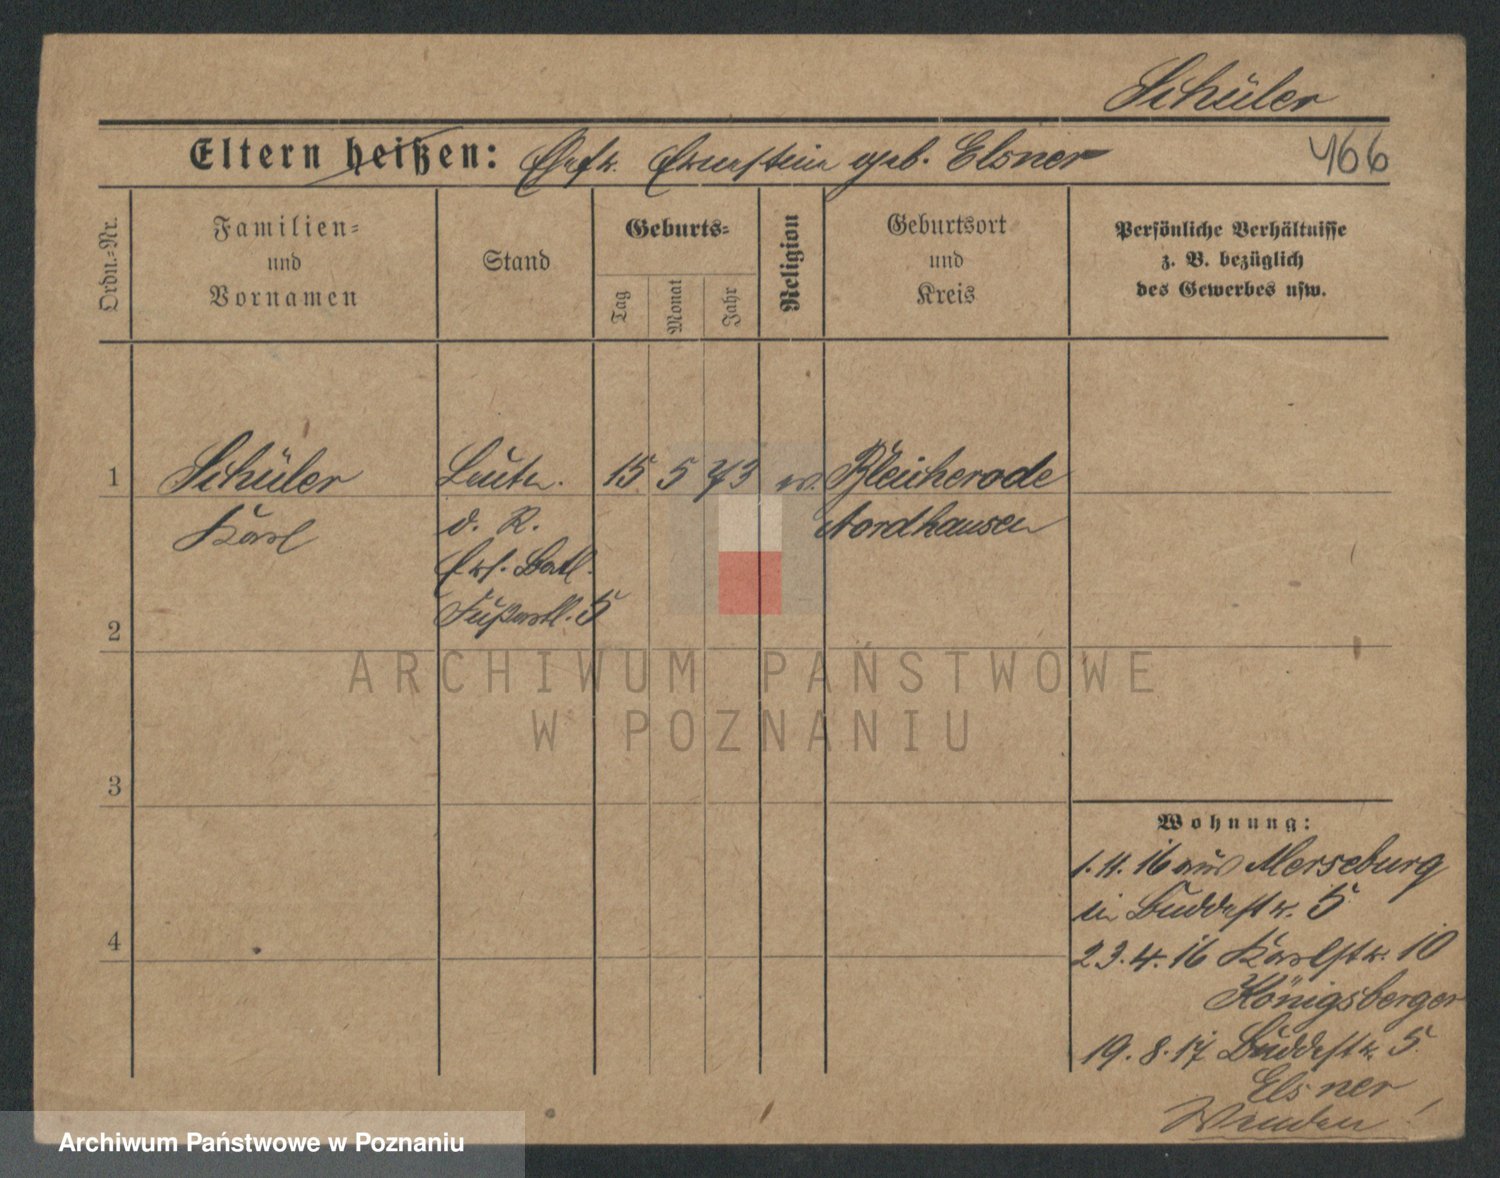 Schüler
Eltern heißen: Ehefr. Ernestine geb. Elsner
466
Ordn.-Nr.
Familien-
und
Vornamen
Stand
Geburts-
Tag
Monat
Jahr
Religion
Geburtsort
und
Kreis
Persönliche Verhältnisse
z. B. bezüglich
des Gewerbes usw.
1
Schüler
Karl
Leutn.
d. R.
Ers. Batl.
Fußartl. 5
15 5 73
ev.
Bleicherode
Nordhausen
2
3
4
Wohnung:
1.11.16 aus Merseburg
in Buddestr. 5
23.4.16 Karlstr. 10
Königsberger
19.8.17 Buddestr. 5
Elsner
Wenden!
ARCHIWUM PAŃSTWOWE
W POZNANIU
Archiwum Państwowe w Poznaniu